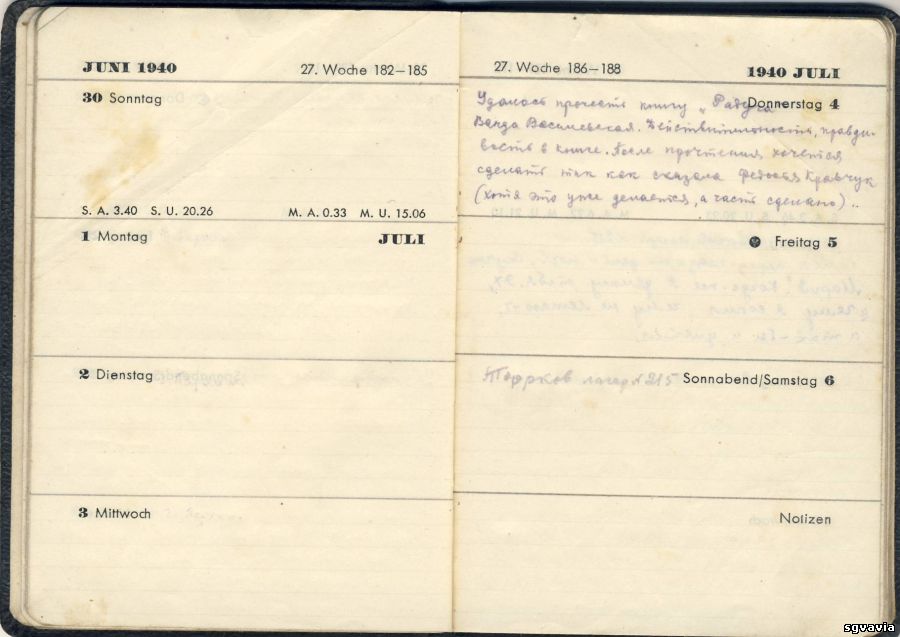 JUNI 1940
27. Woche 182–185
30 Sonntag
S. A. 3.40 S. U. 20.26 M. A. 0.33 M. U. 15.06
1 Montag JULI
2 Dienstag
3 Mittwoch
27. Woche 186–188
1940 JULI
Donnerstag 4
Удалось прочесть книгу „Радуга
Ванда Василевская. Действительность, правди-
вость в книге. После прочтения хочется
сделать так как сказала Федосья Кравчук
(хотя это уже делается, а часть сделано)..
Freitag 5
Sonnabend/Samstag 6
лагерь № 215
Notizen
sgvavia